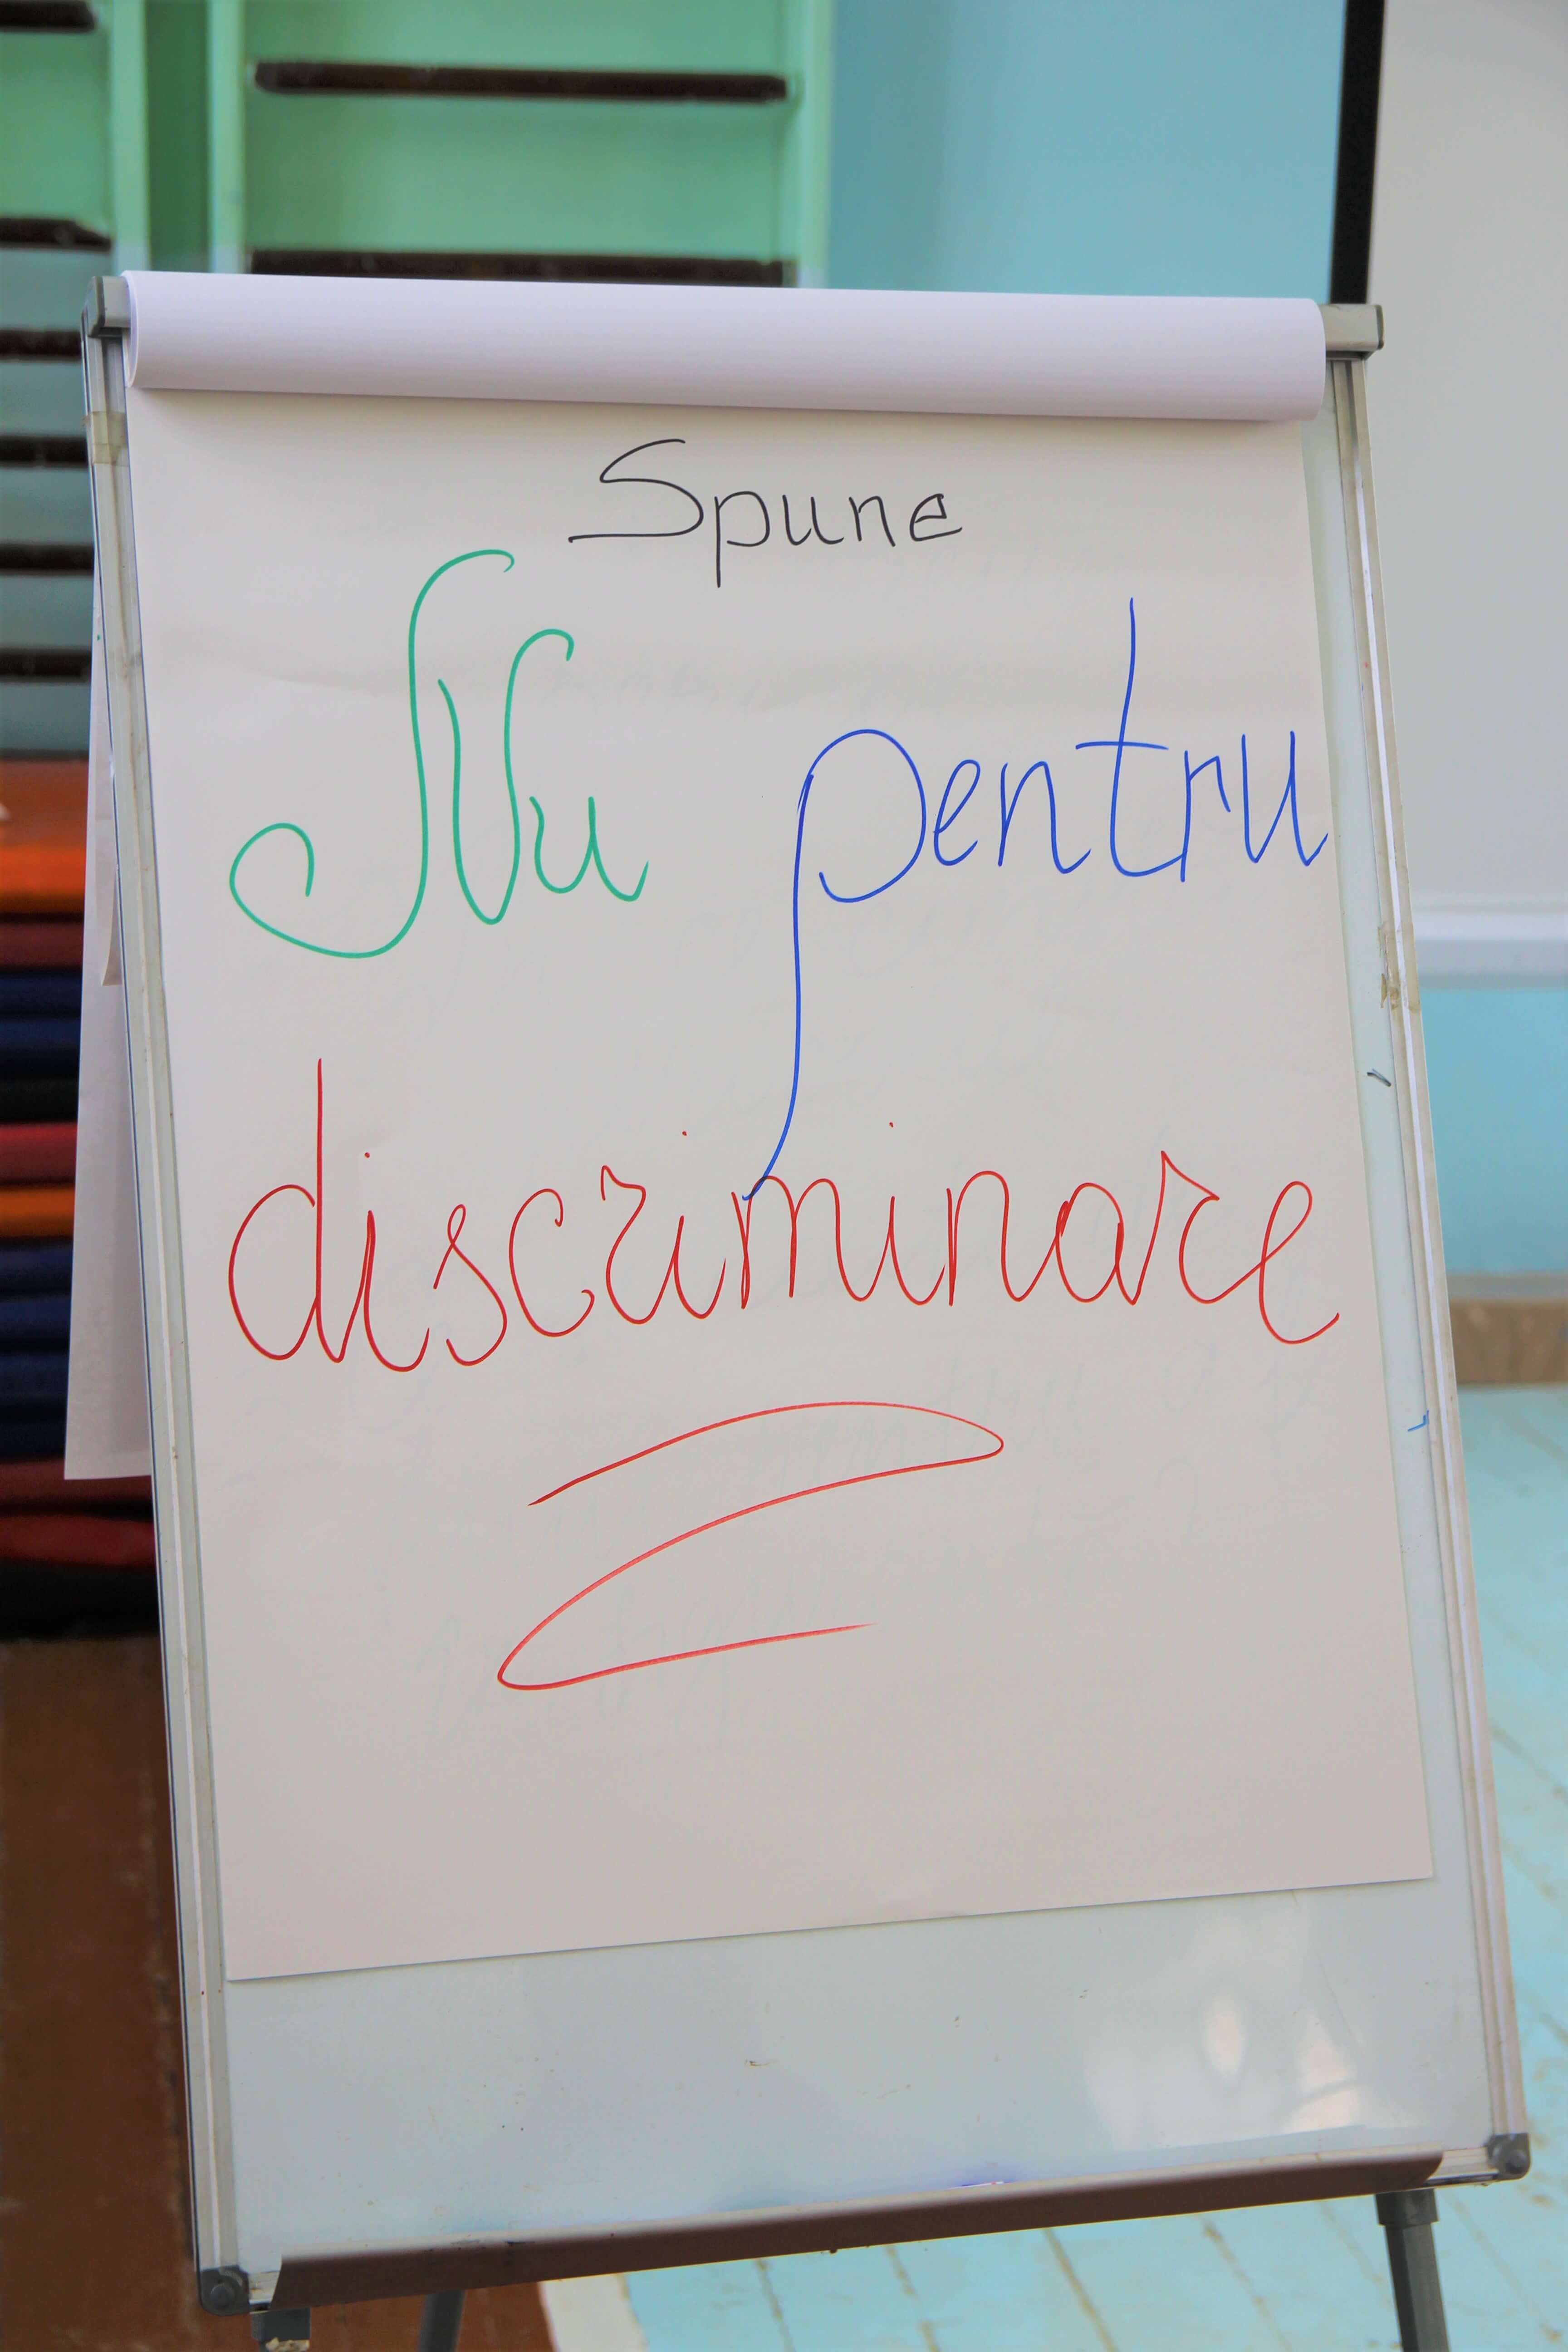 Spune
Nu pentru
discriminare